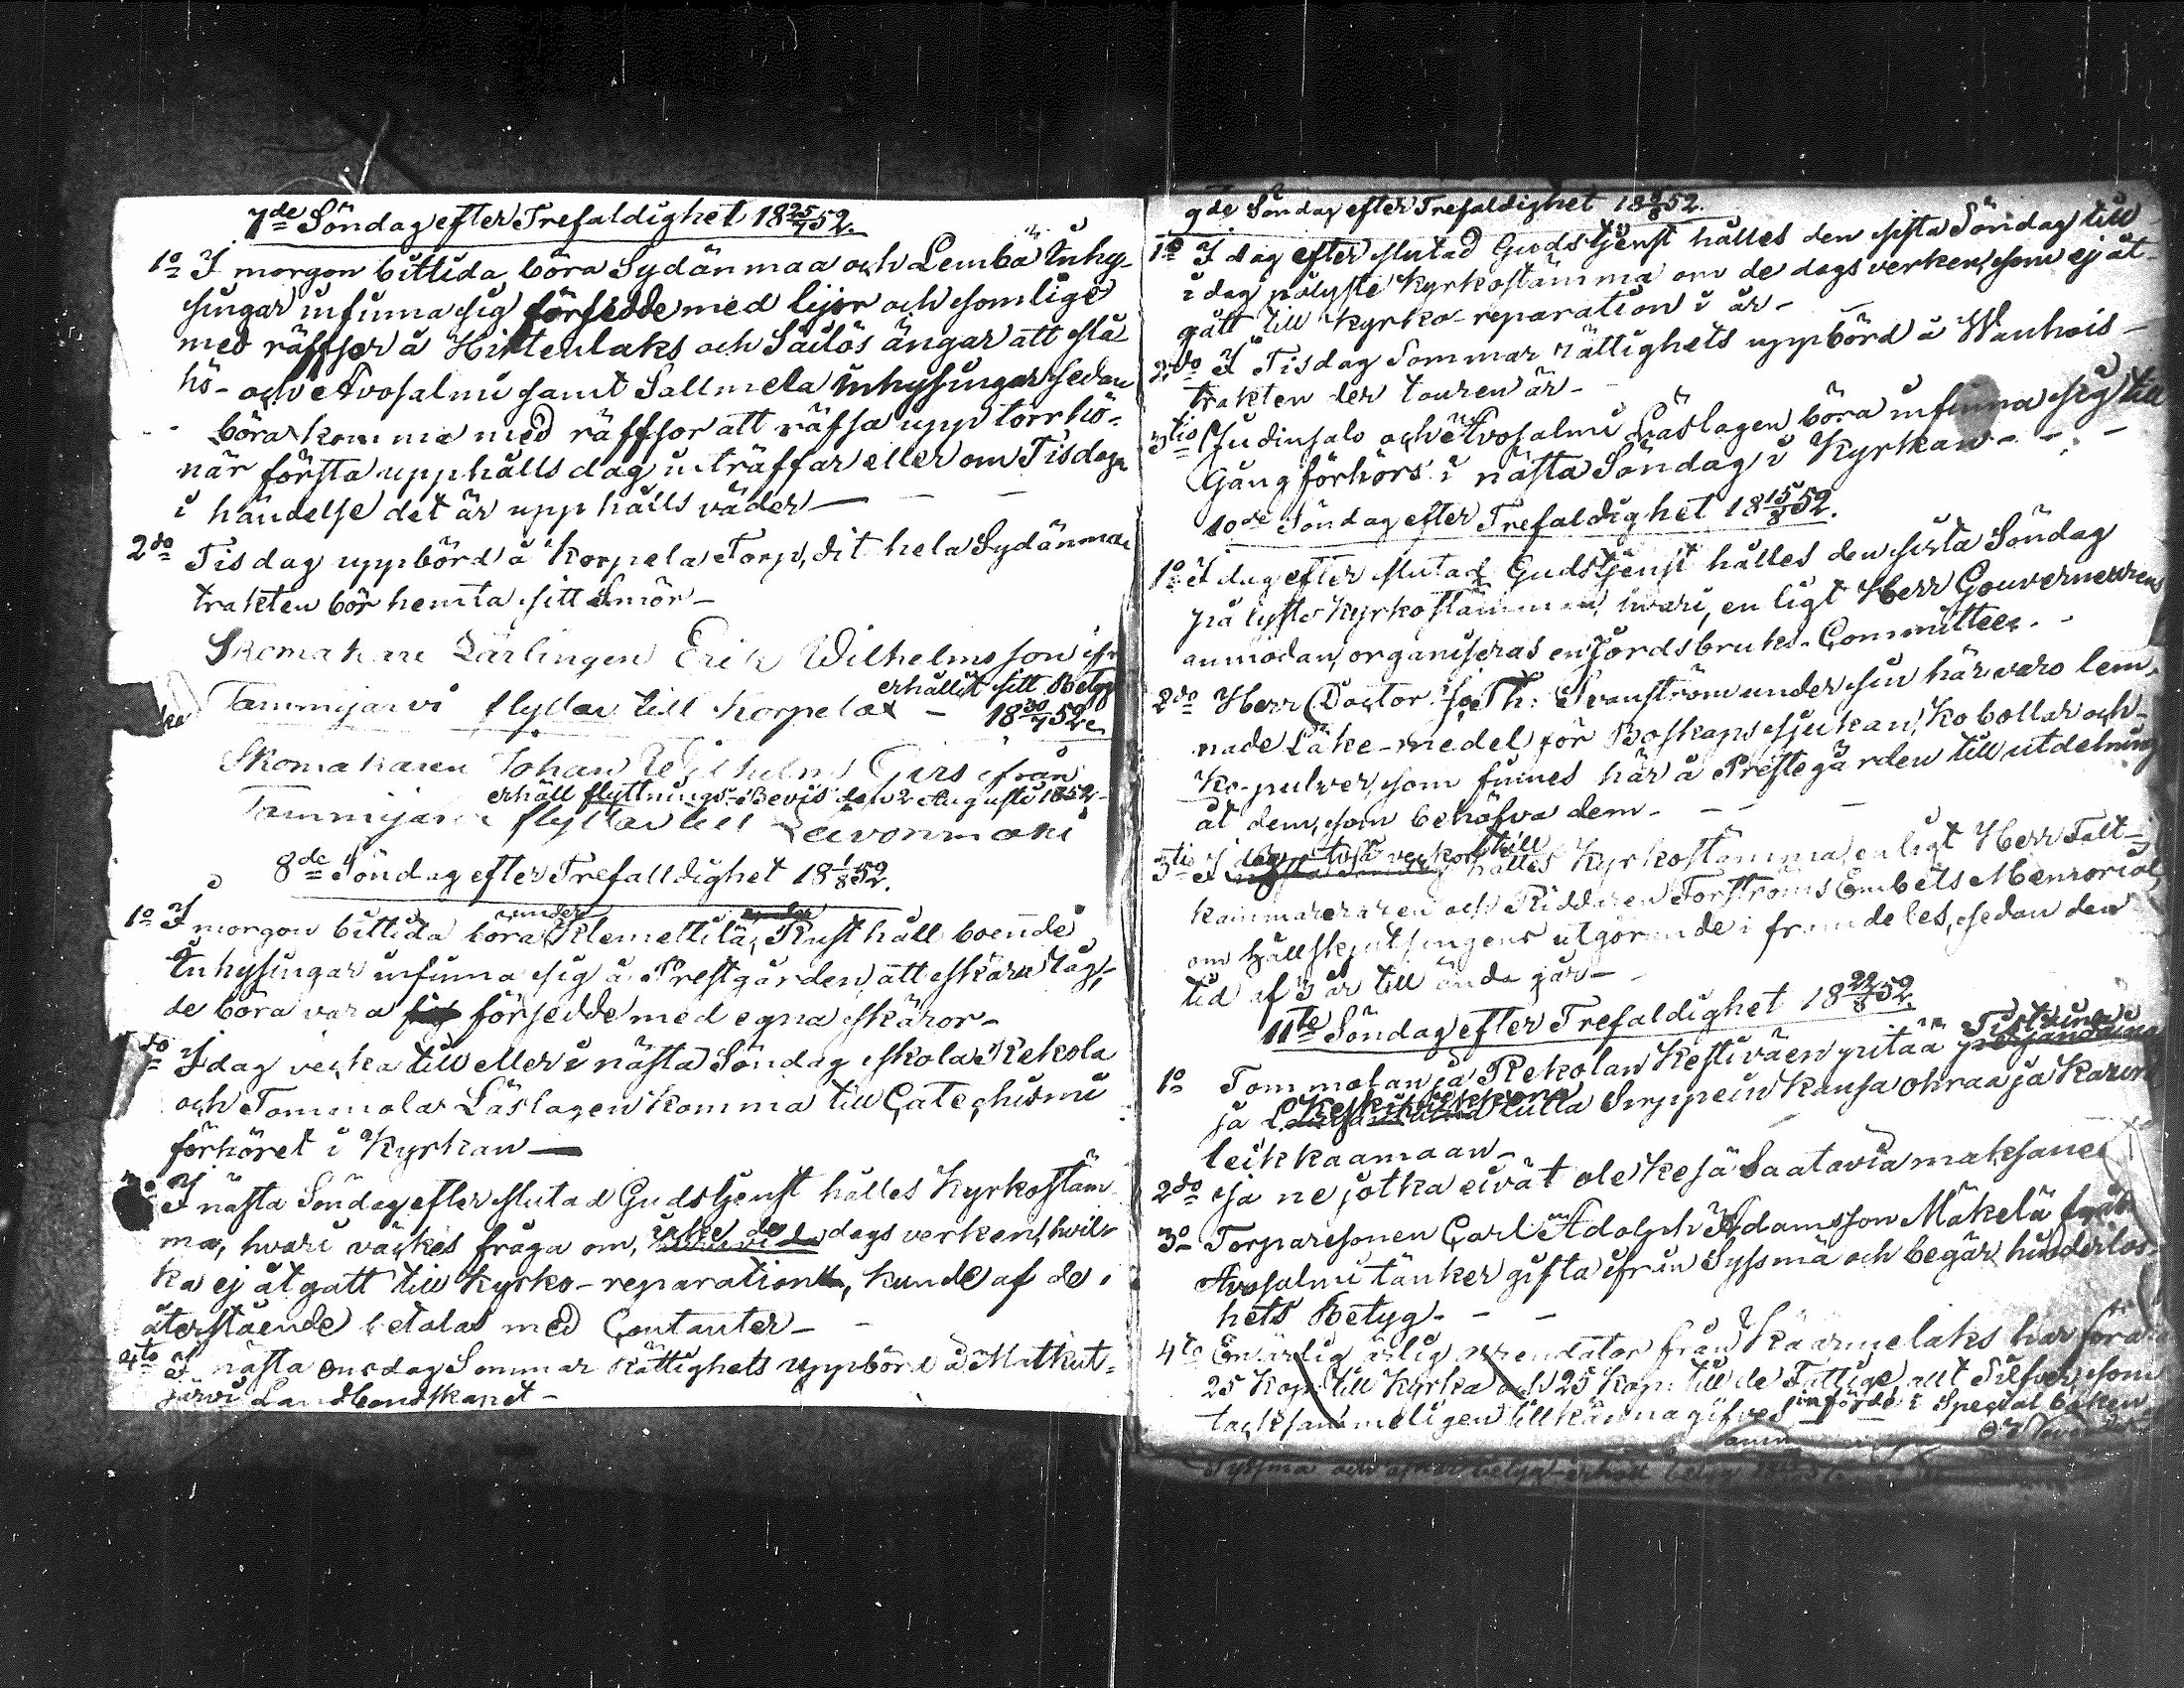 7de Söndag efter Trefaldighet 18 25/7 52.
1o I morgon bittida böra Sydänmaa och Lemba Inhy-
singar infinna sig försedde med lijor och somlige
med räffsor å Hirtenlaks och Säilös ängar att slå
hö - och Avosalmi samt Sallmela Inhysingar sedan
böra komma med räffsor att räfsa upp torr hö-
när första upphålls dag inträffar eller om Tisdag
i händelse det är upphålls väder -
2do Tisdag uppbörd å Korpela Torp, dit hela Sydänmaa
trakten bör hemta sitt Smör -
Skomakare Lärlingen Erik Wilhelmsson ifr
erhållit sitt Betyg
Tammijärvi flyttar till Korpelax - 18 30/7 52.
Skomakaren Johan Wilhelms Girs ifrån
erhåll flyttnings-Bevis den 2 Augusti 1852
Tammijärvi flyttar till Leivonmäki
8de Söndag efter Trefalldighet 18 1/8 52.
1o I morgon bittida böra under Klemettilä Rusthåll boende
Inhysingar infinna sig å Prestgården att skära råg,
de böra vara försedde med egna skäror -
do I dag vecka till eller i nästa Söndag skola Rekola
och Tommola Läslagen komma till Catechismi
förhöret i Kyrkan -
I nästa Söndag efter slutad Gudstjenst hålles Kyrkostäm-
ma, hvari väckes fråga om, icke de dagsverken, hvil-
ka ej åtgått till Kyrko-reparation, kunde af de
återstående betalas med Contanter -
4to I nästa onsdag Sommar Rättighets uppbörd å Matkut-
järvi Landbondskapet -
9de Söndag efter Trefaldighet 18 8/8 52.
1o I dag efter slutad Gudstjenst hålles den sista Söndag till
i dag pålyste Kyrkostämma om de dagsverken, som ej åt-
gått till Kyrko-reparation i år -
2do I Tisdag Sommar rättighets uppbörd å Wanhois-
trakten der touren är -
3tio Judinsalo och Avosalmi Läslagen böra infinna sig till
Gång förhörs i nästa Söndag i Kyrkan - -
10de Söndag efter Trefaldighet 18 15/8 52.
1o I dag efter slutad Gudstjenst hålles den sista Söndag
pålyste Kyrkostämman, hvari, enligt Herr Gouverneurens
anmodan, organiseras en Jordsbruks-Committee. -
2do Herr Doctor Th: Svanström under sin härvaro lem-
nade Läke-medel för Boskaps sjukan, Ko bollar och
Ko-pulver, som finnes här å Prestegården till utdelning
åt dem, som behöfva dem - - -
3tio I dag två veckor till hålles Kyrkostämma, enligt Herr Falt-
kammereraren och Riddaren Forströms Embets Memorial,
om Hållskjutsingens utgörande i framdeles, sedan den
tid af 3 år till ända går -
11te Söndag efter Trefaldighet 18 22/8 52.
1o Tommolan ja Rekolan Kestiväen pitää Tistaina
ja Keskiviikkona tulla Sirppein kansa ohraa ja Kauroi
leikkaamaan -
2do ja ne jotka eivät ole kesä Saatavia maksanet
3o Torparesonen Carl Adolph Adamsson Mäkelä från
Avosalmi tänker gifta ifrån Syssmä och begär hinderlös-
hets Betyg - - -
4to En ärlig arrendator från Käärmelaks har förärat
25 kop: till Kyrka och 25 Kop: till de Fattige allt Silfver som
tacksammeligen tillkänna gifves införde i Special boken